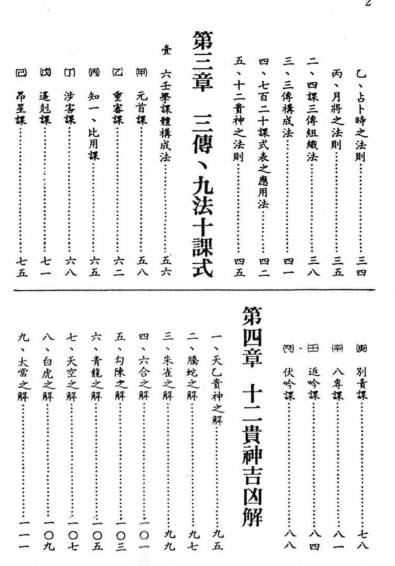 2
乙、占卜時之法則……………三四
丙、月將之法則……………三五
二、四課三傳組織法……………三八
三、三傳構成法……………四一
四、七百二十課式表之應用法……………四二
五、十二貴神之法則……………四五
第三章 三傳、九法十課式
壹 六壬學課體構成法……………五六
(甲) 元首課……………五八
(乙) 重審課……………六二
(丙) 知一、比用課……………六五
(丁) 涉害課……………六八
(戊) 遙剋課……………七一
(己) 昴星課……………七五
(庚) 別責課……………七八
(辛) 八專課……………八一
(壬) 返吟課……………八四
(癸) 伏吟課……………八八
第四章 十二貴神吉凶解
一、天乙貴神之解……………九五
二、螣蛇之解……………九七
三、朱雀之解……………九九
四、六合之解……………一〇一
五、勾陳之解……………一〇三
六、青龍之解……………一〇五
七、天空之解……………一〇七
八、白虎之解……………一〇九
九、太常之解……………一一一